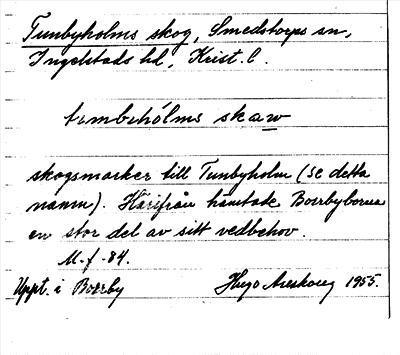 Tunbyholms skog, Smedstorps sn,
Ingelstads hd, Krist. l.
tembehólms skaw
skogsmarker till Tunbyholm (se detta
namn). Härifrån hämtade Borrbyborna
en stor del av sitt vedbehov.
M. f. -84.
Uppt. i Borrby Hugo Areskoug 1955.